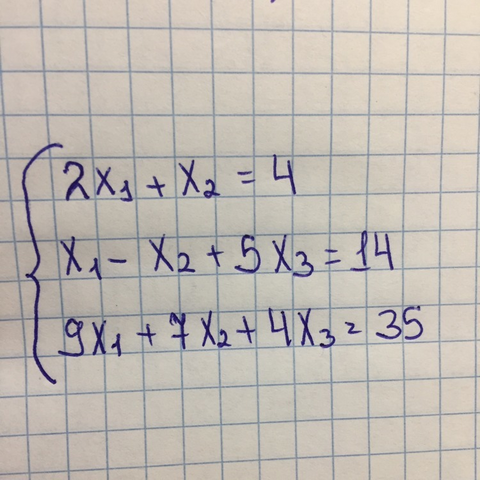 2x₁ + x₂ = 4
x₁ - x₂ + 5x₃ = 14
9x₁ + 7x₂ + 4x₃ = 35